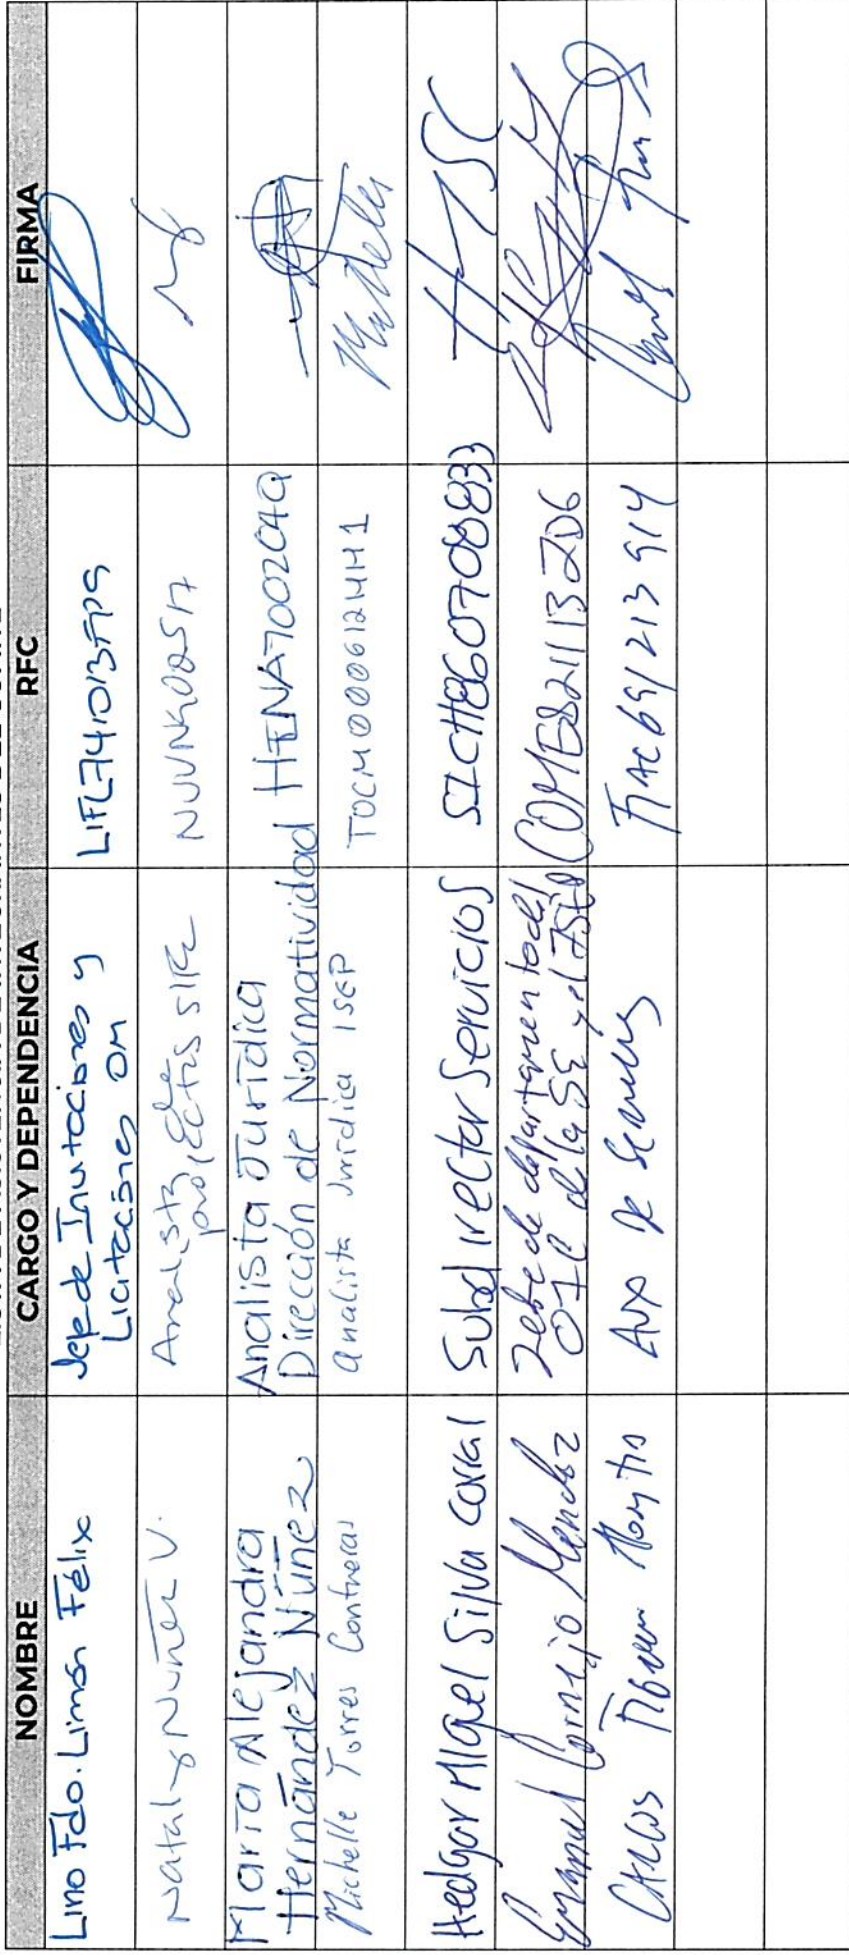 NOMBRE CARGO Y DEPENDENCIA RFC FIRMA
Lino Fdo. Limón Félix Jefe de Invitaciones y
Licitaciones OM LIFL741013FP9
Nataly Nuñez V. Analista de
proyectos
María Alejandra
Hernández Núñez Analista Jurídica
Dirección de Normatividad
Michelle Torres Contreras Analista Jurídica ISEP TOCM000612HH1 Michelle
Hedgar Miguel Silva Corral Subdirector Servicios SICH860708833 HMSC
Emanuel Cornejo Mendez Jefe de departamento del
OIC de la SE y el ISEP COME821113ZD6
Carlos Aux De Servicios